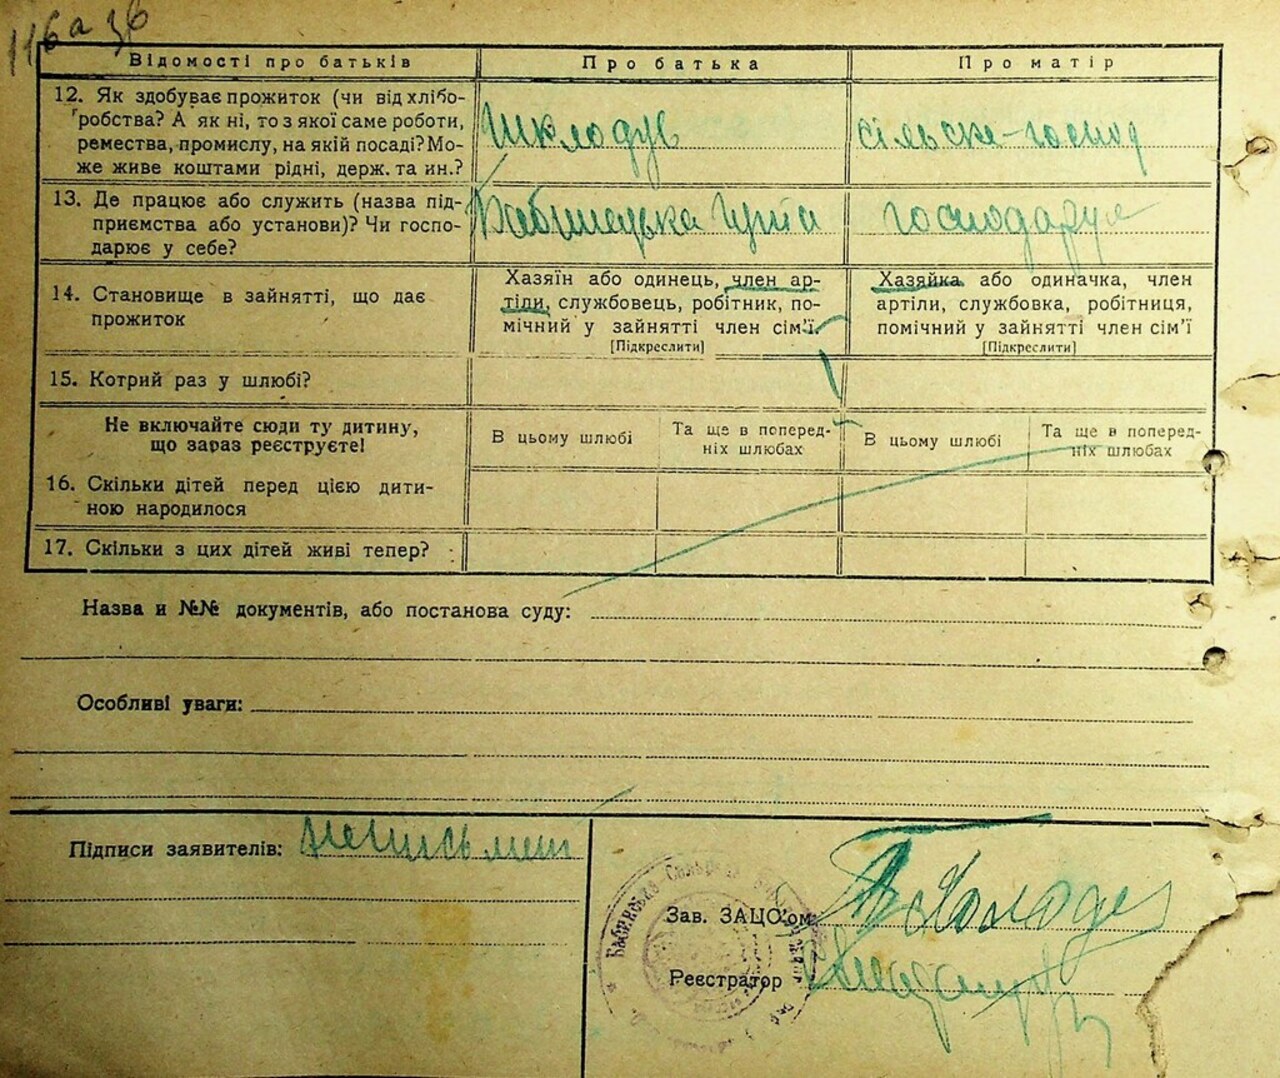 116 а зб
Відомості про батьків
Про батька
Про матір
12. Як здобуває прожиток (чи від хлібо-
робства? А як ні, то з якої саме роботи,
ремества, промислу, на якій посаді? Мо-
же живе коштами рідні, держ. та ин.?
Шклодув
сільске-господ
13. Де працює або служить (назва під-
приємства або установи)? Чи госпо-
дарює у себе?
гута
господарує
14. Становище в зайнятті, що дає
прожиток
Хазяїн або одинець, член ар-
тіли, службовець, робітник, по-
мічний у зайнятті член сім'ї.
[Підкреслити]
Хазяйка або одиначка, член
артіли, службовка, робітниця,
помічний у зайнятті член сім'ї
[Підкреслити]
15. Котрий раз у шлюбі?
Не включайте сюди ту дитину,
що зараз реєструєте!
В цьому шлюбі
Та ще в поперед-
ніх шлюбах
В цьому шлюбі
Та ще в поперед-
ніх шлюбах
16. Скільки дітей перед цією дити-
ною народилося
17. Скільки з цих дітей живі тепер?
Назва и №№ документів, або постанова суду:
Особливі уваги:
Підписи заявителів: неписьмен
Зав. ЗАЦС'ом
Реєстратор